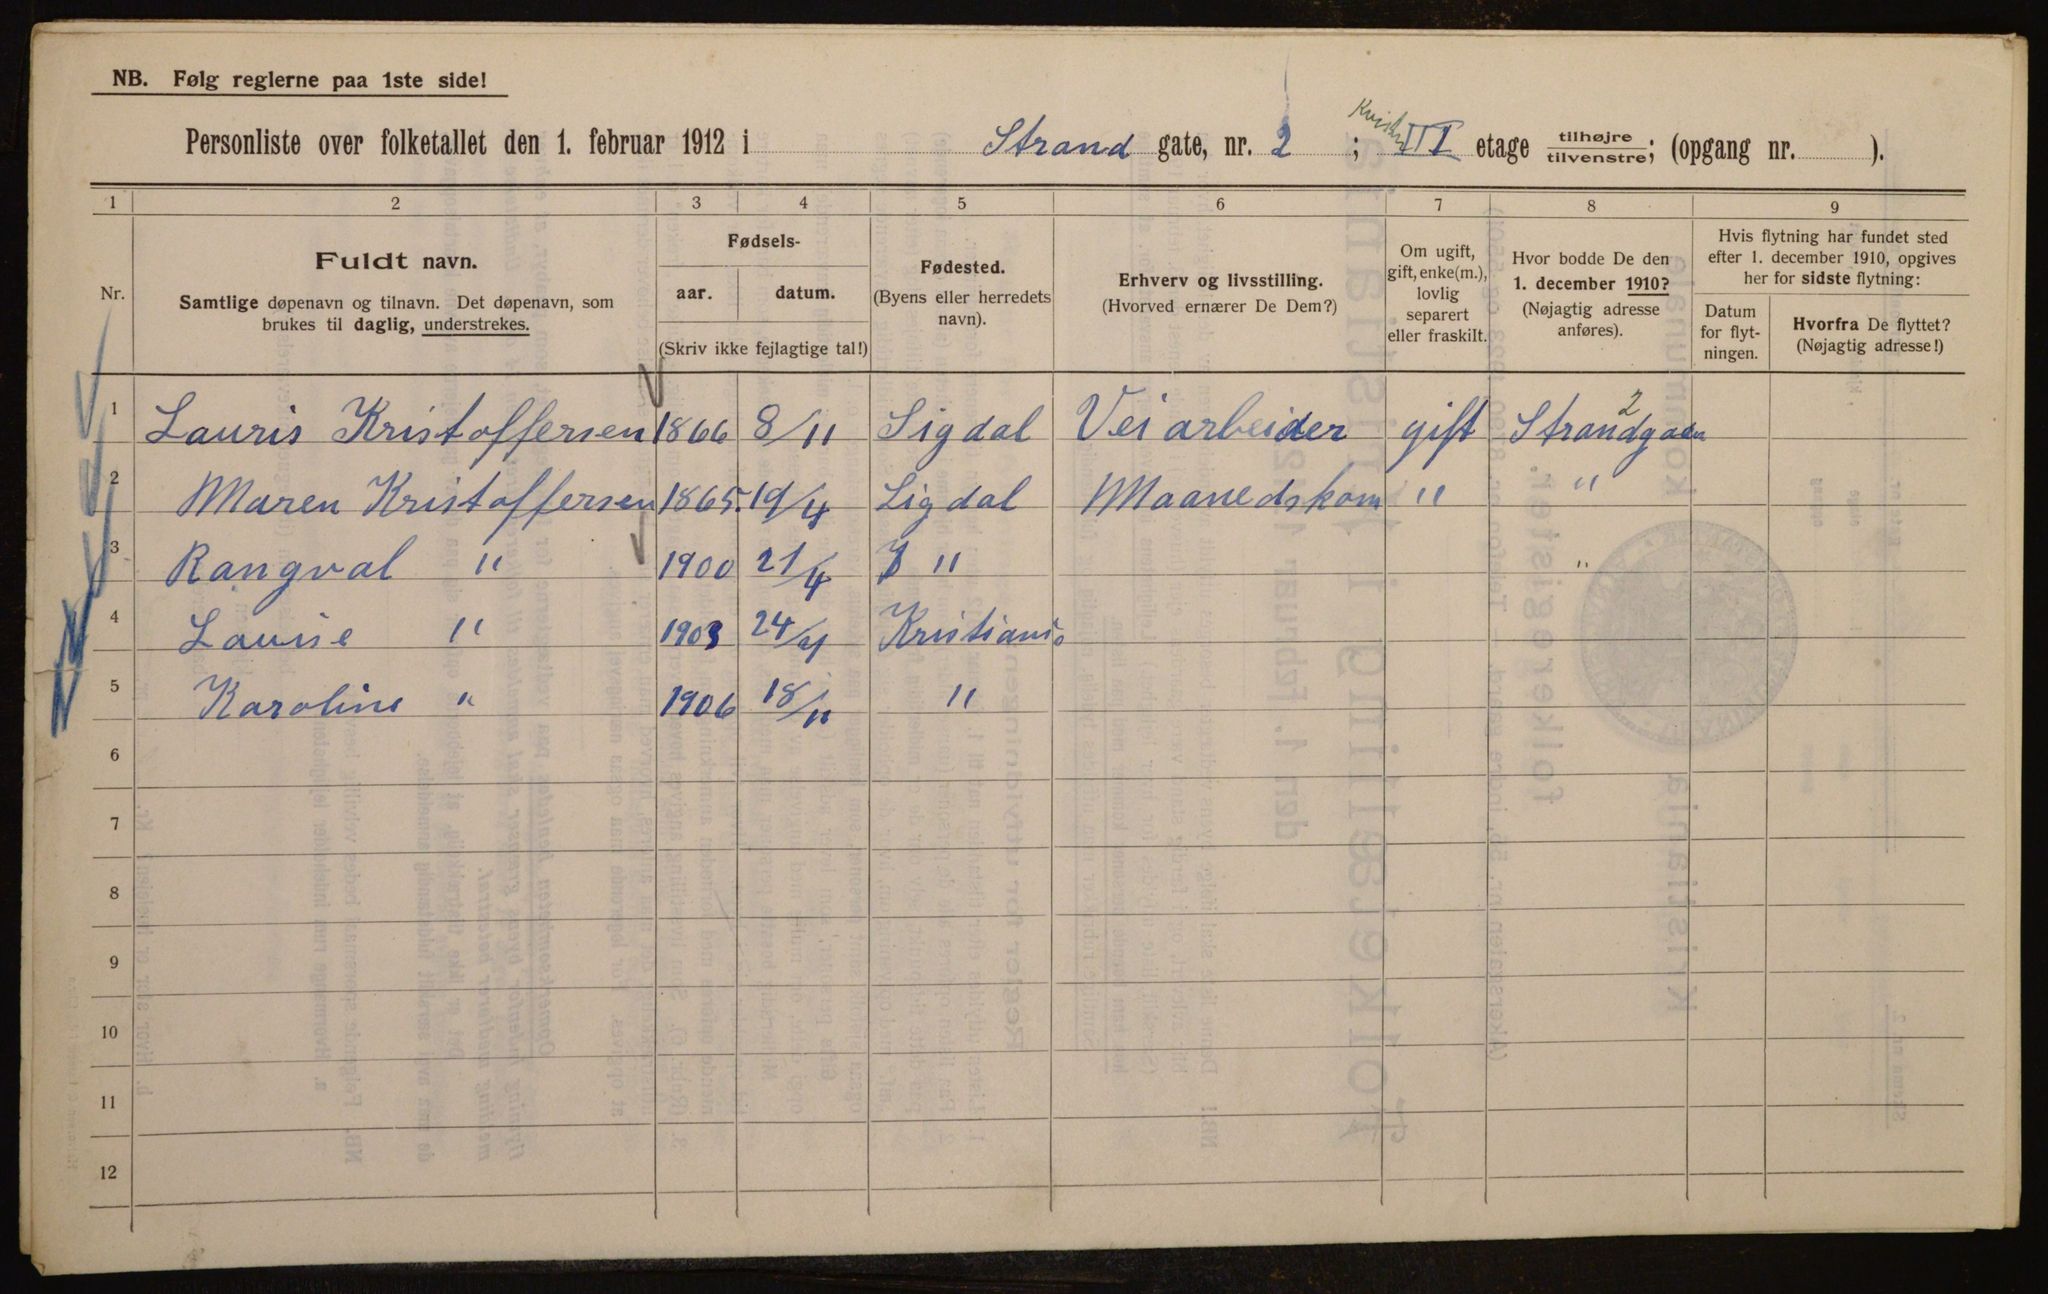 NB. Følg reglerne paa 1ste side!
Kvist
Personliste over folketallet den 1. februar 1912 i Strand gate, nr. 2 ; III etage tilhøjre tilvenstre; (opgang nr. ).
1 2 3 4 5 6 7 8 9
Nr.
Fuldt navn.
Samtlige døpenavn og tilnavn. Det døpenavn, som
brukes til daglig, understrekes.
Fødsels-
aar. datum.
(Skriv ikke fejlagtige tal!)
Fødested.
(Byens eller herredets
navn).
Erhverv og livsstilling.
(Hvorved ernærer De Dem?)
Om ugift,
gift, enke(m.),
lovlig
separert
eller fraskilt.
Hvor bodde De den
1. december 1910?
(Nøjagtig adresse
anføres).
Hvis flytning har fundet sted
efter 1. december 1910, opgives
her for sidste flytning:
Datum
for flyt-
ningen.
Hvorfra De flyttet?
(Nøjagtig adresse!)
1 Lauris Kristoffersen 1866 8/11 Sigdal Vei arbeider gift Strandgaten 2
2 Maren Kristoffersen 1865. 19/4 Sigdal Maanedskom " "
3 Rangval " 1900 21/4 " "
4 Lauise " 1903 24/4 Kristiania
5 Karoline " 1906 18/11 "
6
7
8
9
10
11
12